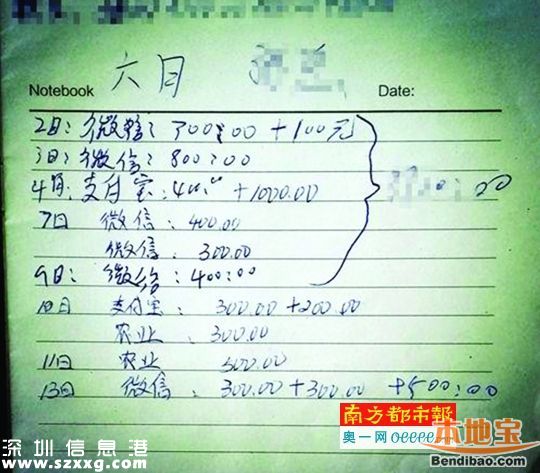 六月
Notebook
Date:
2日: 微信: 700:00 +100元
3日: 微信: 800:00
4月: 支付宝: +1000.00
7日 微信: 400.00
微信: 300.00
9日: 微信: 400:00
10日 支付宝: 300.00 +200.00
农业: 300.00
11日 农业 500.00
13日 微信: 300.00 +300.00 +500:00
南方都市報
奥一网 oeeeee.com
本地宝
Bendibao.com
深圳信息港
www.szxxg.com